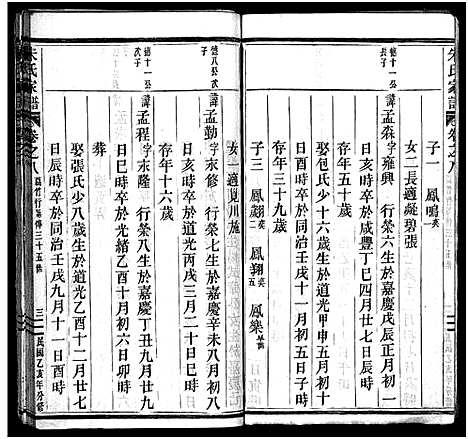 朱氏家譜 卷之八
子一 鳳鳴癸
女二長適凝碧張
德十一公長子
諱孟森字雍興 行榮六生於嘉慶戊辰正月初一
日亥時卒於咸豐丁巳四月初八日亥時
存年五十歲
娶包氏少十六歲生於道光甲申五月初十
日亥時卒於同治壬戌十一月初五日戌時
存年三十九歲
子三 鳳翽癸二 鳳翔癸五 鳳樂早殤
德八公次子
諱孟勤字永修 行榮七生於嘉慶辛未八月初八
日辰時卒於道光丙戌三月二十日巳時
存年十六歲
女一適覓川施
德十一公次子
諱孟程字永隆 行榮八生於嘉慶丁丑九月廿九
日巳時卒於光緒乙酉十月初六日卯時
葬
娶張氏少八歲生於道光乙酉十二月廿七
日辰時卒於同治壬戌九月十一日酉時
朱氏家譜 卷之八 三 民國乙亥年分修